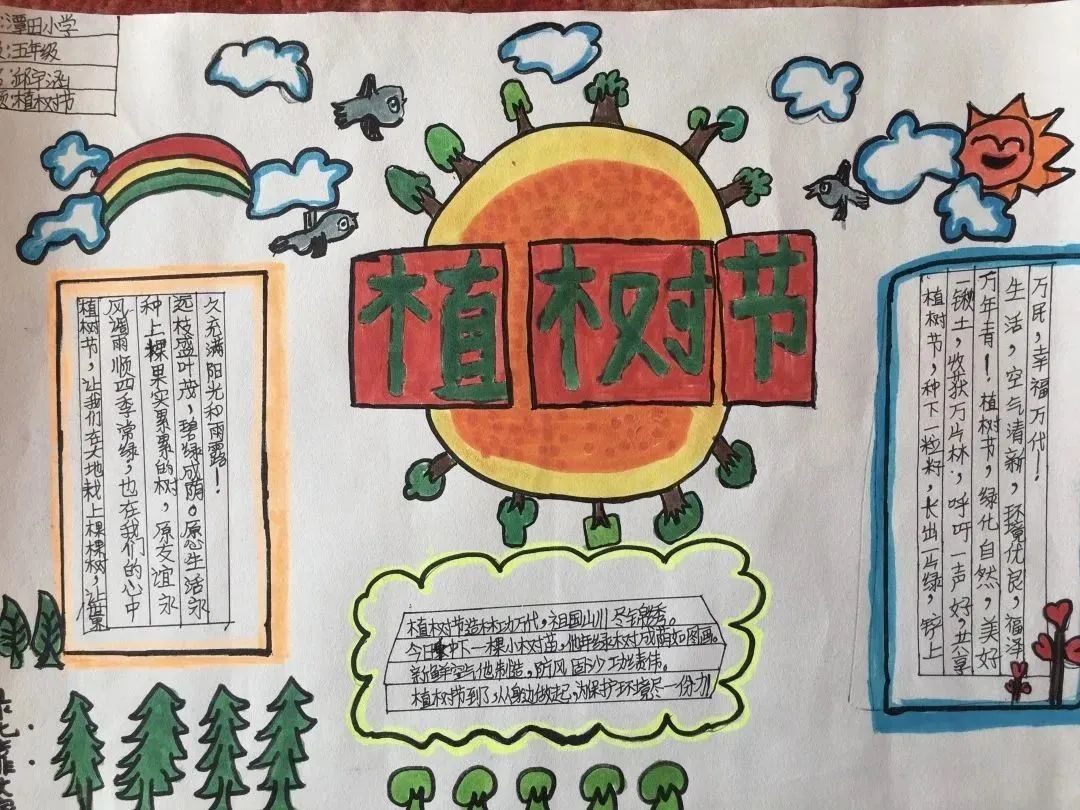 :潭田小学
:五年级
:邱宇涵
:植树节
植树节
植树节，让我们在大地栽上棵棵树，让
风调雨顺四季常绿，也在我们的心中
种上棵果实累累的树，原友谊永
远枝盛叶茂，碧绿成荫。愿生活永
久充满阳光和雨露！
植树节造林功万代，祖国山川尽锦秀。
今日种下一棵小树苗，他年绿树成荫如图画。
新鲜空气他制造，防风固沙功绩伟。
植树节到了，从身边做起，为保护环境尽一份力！
植树节，种下一粒籽，长出一片绿，铲上
一锹土，收获万片林，呼吁一声好，共享
万年青！植树节，绿化自然，美好
生活，空气清新，环境优良，福泽
万民，幸福万代！